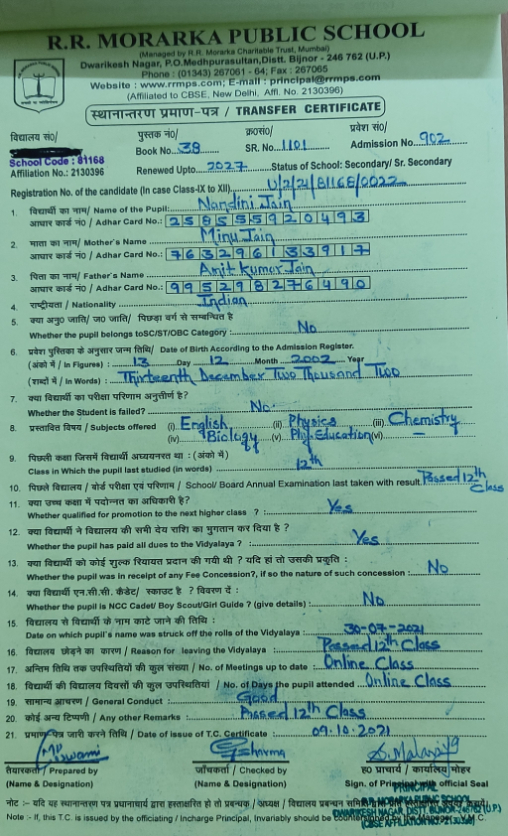 R.R. MORARKA PUBLIC SCHOOL
(Managed by R.R. Morarka Charitable Trust, Mumbai)
Dwarikesh Nagar, P.O.Medhpurasultan,Distt. Bijnor - 246 762 (U.P.)
Phone : (01343) 267061 - 64; Fax : 267065
Website : www.rrmps.com; E-mail : principal@rrmps.com
(Affiliated to CBSE, New Delhi, Affi. No. 2130396)
स्थानान्तरण प्रमाण-पत्र / TRANSFER CERTIFICATE
विद्यालय सं०/ पुस्तक नं०/ क्र०सं०/ प्रवेश सं०/
Book No. 38 SR. No. 1101 Admission No. 902
School Code : 81168
Affiliation No. : 2130396 Renewed Upto 2027 Status of School: Secondary/ Sr. Secondary
Registration No. of the candidate (In case Class-IX to XII) U/2/21/81168/0022
1. विद्यार्थी का नाम/ Name of the Pupil: Nandini Jain
आधार कार्ड नं० / Adhar Card No.: 258555920493
2. माता का नाम/ Mother's Name Minu Jain
आधार कार्ड नं० / Adhar Card No.: 763296133917
3. पिता का नाम/ Father's Name Amit Kumar Jain
आधार कार्ड नं० / Adhar Card No.: 995298276490
4. राष्ट्रीयता / Nationality Indian
5. क्या अनु० जाति/ ज० जाति/ पिछड़ा वर्ग से सम्बन्धित है
Whether the pupil belongs toSC/ST/OBC Category : No
6. प्रवेश पुस्तिका के अनुसार जन्म तिथि/ Date of Birth According to the Admission Register.
(अंको में / in Figures) : 13 Day 12 Month 2002 Year
(शब्दों में / in Words) : Thirteenth December Two Thousand Two
7. क्या विद्यार्थी का परीक्षा परिणाम अनुत्तीर्ण है?
Whether the Student is failed? No
8. प्रस्तावित विषय / Subjects offered (i) English (ii) Physics (iii) Chemistry
(iv) Biology (v) Phy. Education (vi) —
9. पिछली कक्षा जिसमें विद्यार्थी अध्ययनरत था : (अंको में)
Class in Which the pupil last studied (in words) 12th
10. पिछले विद्यालय / बोर्ड परीक्षा एवं परिणाम / School/ Board Annual Examination last taken with result Passed 12th Class
11. क्या उच्च कक्षा में पदोन्नत का अधिकारी है?
Whether qualified for promotion to the next higher class ? : Yes
12. क्या विद्यार्थी ने विद्यालय की सभी देय राशि का भुगतान कर दिया है ?
Whether the pupil has paid all dues to the Vidyalaya ? Yes
13. क्या विद्यार्थी को कोई शुल्क रियायत प्रदान की गयी थी ? यदि हां तो उसकी प्रकृति :
Whether the pupil was in receipt of any Fee Concession?, if so the nature of such concession : No
14. क्या विद्यार्थी एन.सी.सी. कैडेट/ स्काउट है ? विवरण दें :
Whether the pupil is NCC Cadet/ Boy Scout/Girl Guide ? (give details) : No
15. विद्यालय से विद्यार्थी के नाम काटे जाने की तिथि :
Date on which pupil's name was struck off the rolls of the Vidyalaya : 30-07-2021
16. विद्यालय छोड़ने का कारण / Reason for leaving the Vidyalaya : Passed 12th Class
17. अन्तिम तिथि तक उपस्थितियों की कुल संख्या / No. of Meetings up to date : Online Class
18. विद्यार्थी की विद्यालय दिवसों की कुल उपस्थितियां / No. of Days the pupil attended Online Class
19. सामान्य आचरण / General Conduct : Good
20. कोई अन्य टिप्पणी / Any other Remarks : Passed 12th Class
21. प्रमाण पत्र जारी करने तिथि / Date of issue of T.C. Certificate : 09.10.2021
तैयारकर्ता / Prepared by जाँचकर्ता / Checked by ह० प्राचार्य / कार्यालय मोहर
(Name & Designation) (Name & Designation) Sign. of Principal with official Seal
PRINCIPAL
R.R. MORARKA PUBLIC SCHOOL
DWARIKESH NAGAR, DISTT. BIJNOR-246762 (U.P.)
(CBSE AFFILIATION No. 2130396)
नोट :- यदि यह स्थानान्तरण पत्र प्रधानाचार्य द्वारा हस्ताक्षरित हो तो प्रबन्धक / अध्यक्ष / विद्यालय प्रबन्धन समिति
Note :- If this, T.C. is issued by the officiating / Incharge Principal, Invariably should be countersigned by the Manager, V.M.C.